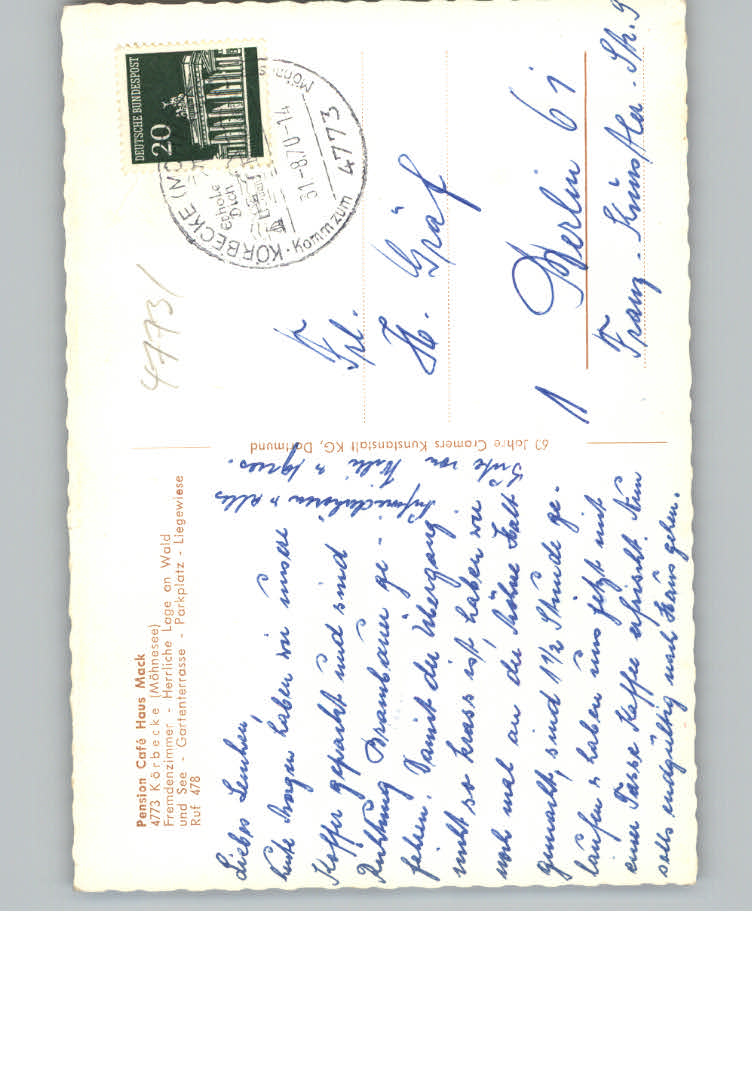 Pension Café Haus Mack
4773 Körbecke (Möhnesee)
Fremdenzimmer - Herrliche Lage an Wald
und See - Gartenterrasse - Parkplatz - Liegewiese
Ruf 478
Liebes Lenchen,
heute Morgen haben wir unsere
Koffer gepackt und sind
Richtung Brambauer ge-
fahren. Damit der Übergang
nicht so krass ist, haben wir
noch mal an der Möhne Halt
gemacht, sind 1 1/2 Stunde ge-
laufen u haben uns jetzt mit
einer Tasse Kaffee erfrischt. Nun
solls endgültig nach Haus gehn.
u alles
Gute von Willi u
60 Jahre Cramers Kunstanstalt KG, Dortmund
4773/
DEUTSCHE BUNDESPOST
20
KÖRBECKE (MÖ
Erhole
Dich
31.-8.70-14
4773
Komm zum
Möhne
Frl.
H. Gräf
1 Berlin 61
Franz-Künstler-Str. 9